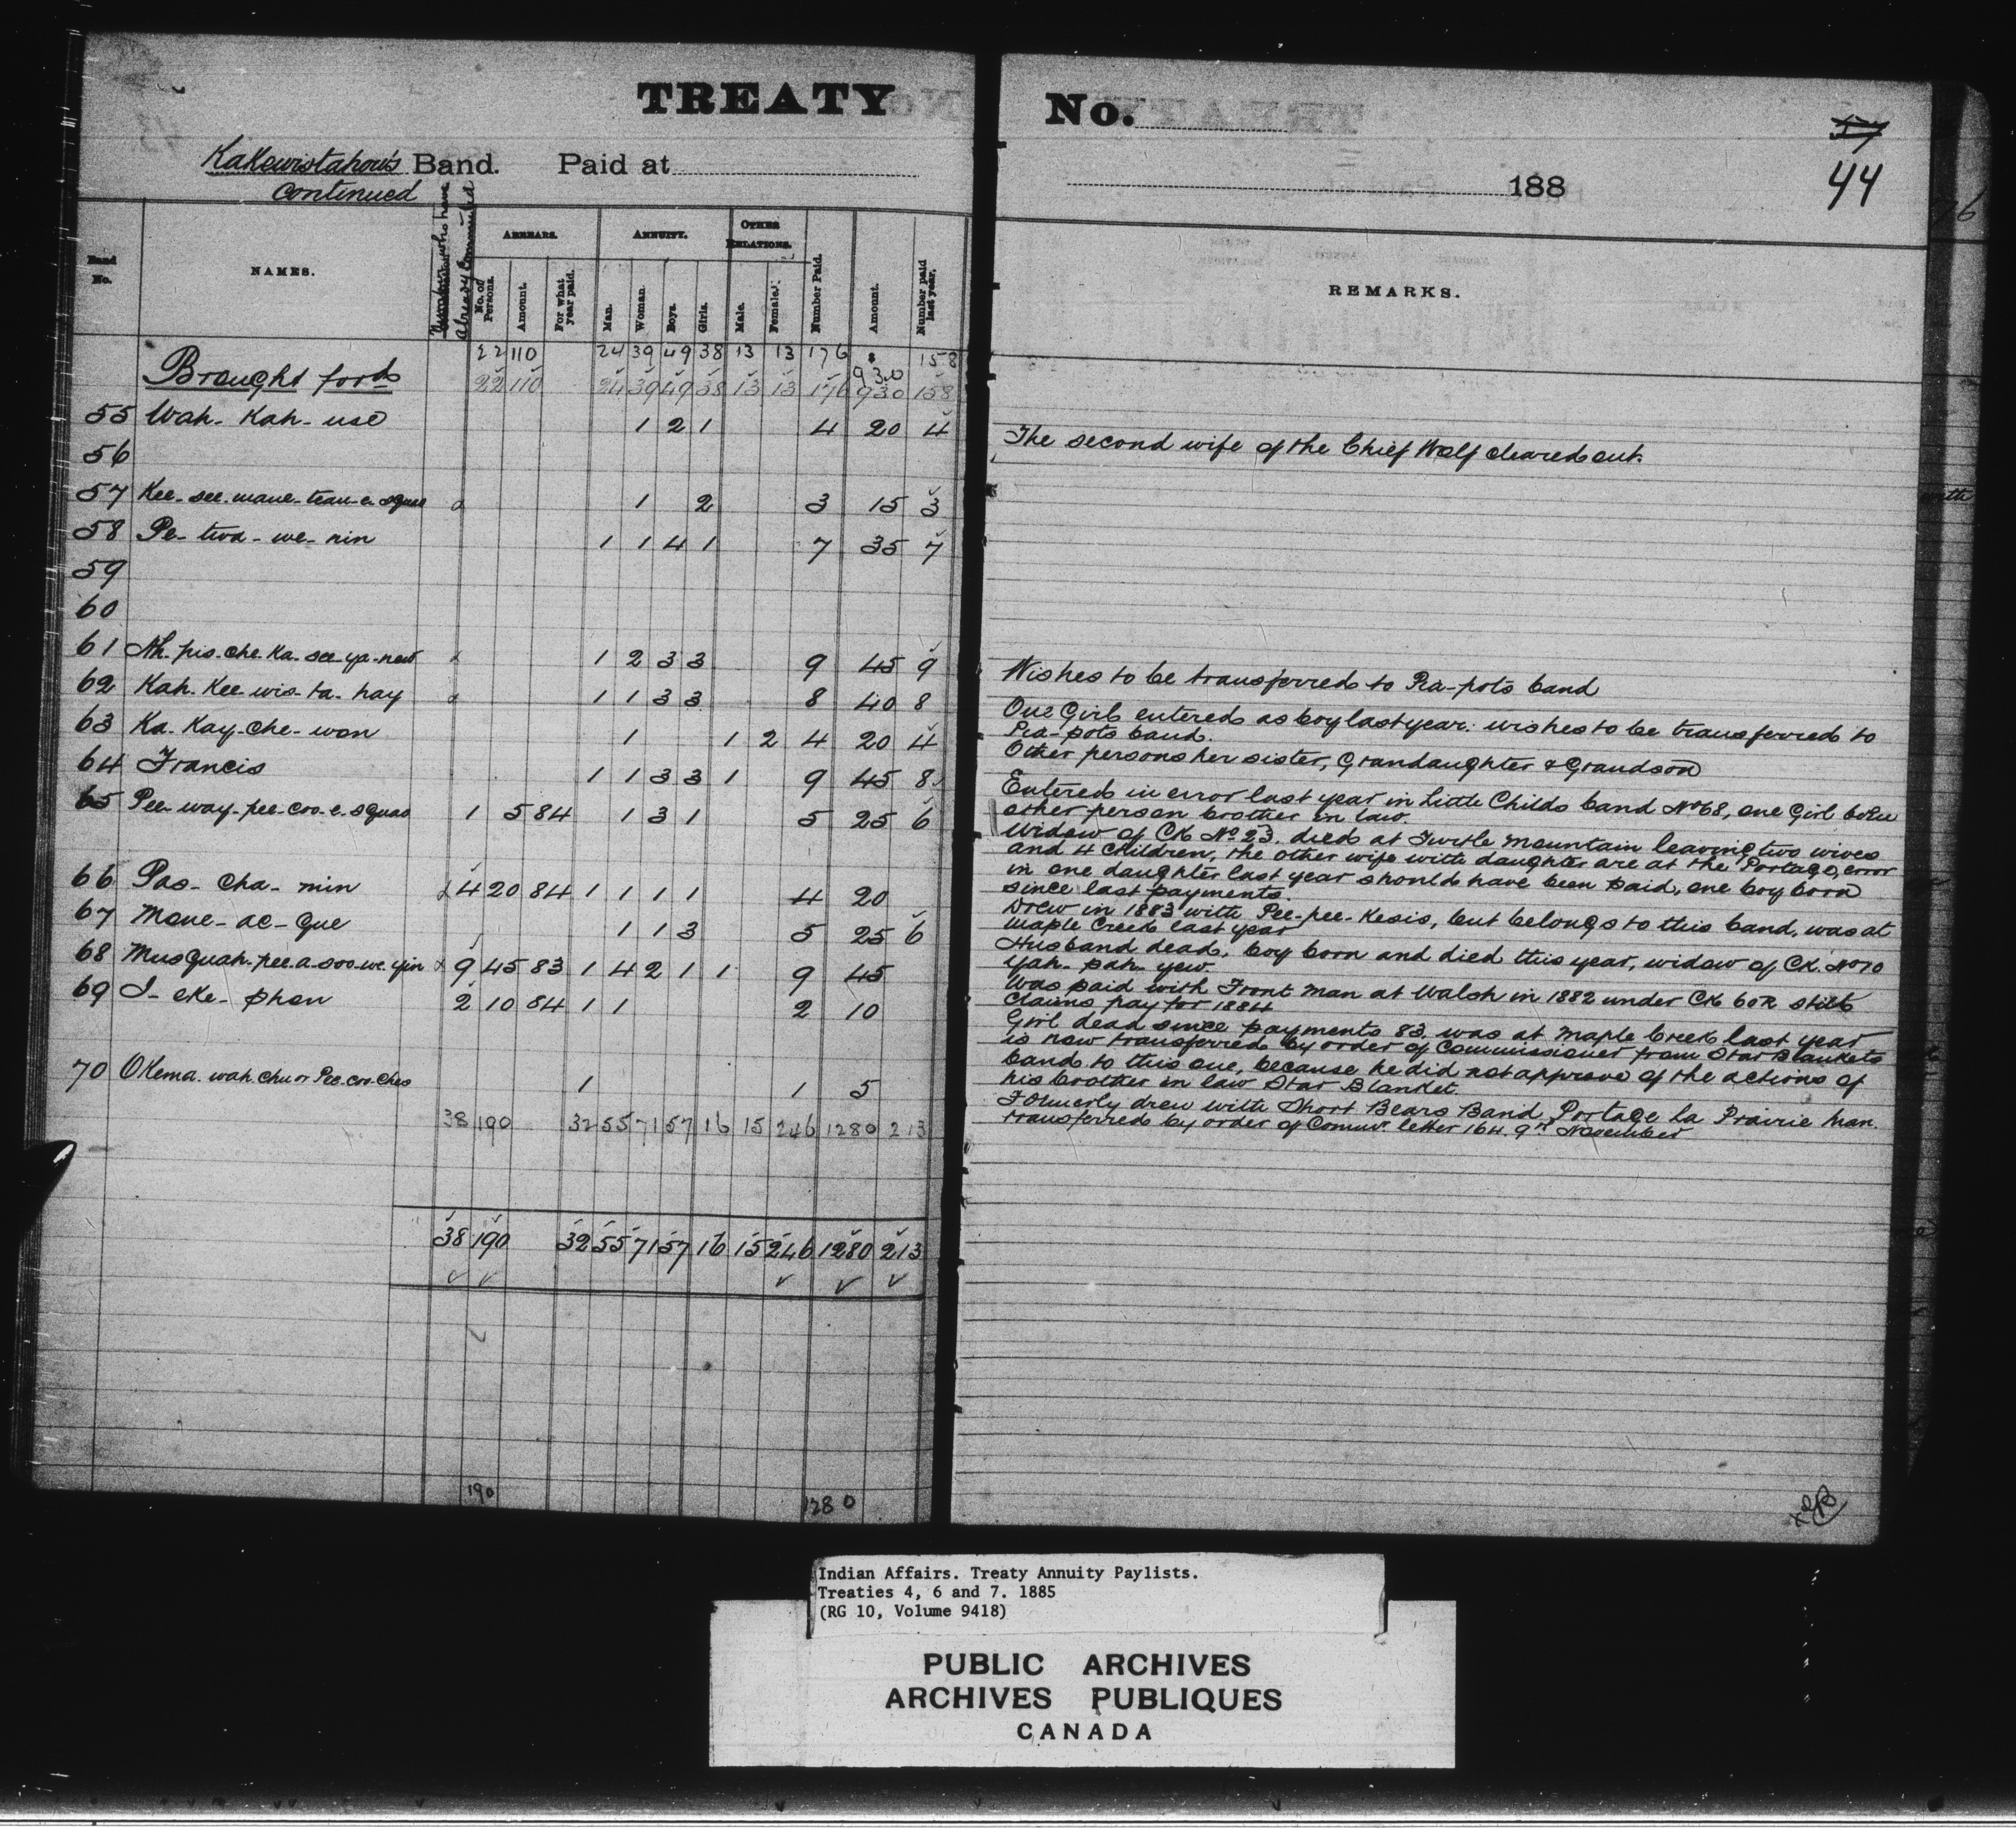 TREATY No.
17
44
Kakewistahow's Band. Paid at
continued
188
Band No.
NAMES.
Number who have Already Commuted
ARREARS.
No. of Persons.
Amount.
For what year paid.
ANNUITY.
Man.
Woman.
Boys.
Girls.
OTHER RELATIONS.
Male.
Female.
Number Paid.
Amount.
Number paid last year.
REMARKS.
22 110 24 39 49 38 13 13 176 $930 158
Brought ford 22 110 24 39 49 38 13 13 176 930 158
55 Wah-Kah-use 1 2 1 4 20 4
The second wife of the Chief Wolf cleared out.
56
57 Kee-see-mane-teau-e-squas 1 2 3 15 3
58 Pe-twa-we-nin 1 1 4 1 7 35 7
59
60
61 Ah-pis-che-Ka-see-ya-new 1 2 3 3 9 45 9
Wishes to be transferred to Pia-pots band
62 Kah-Kee-wis-ta-hay 1 1 3 3 8 40 8
One Girl entered as boy last year. wishes to be transferred to
Pia-pots band.
63 Ka-Kay-che-won 1 1 2 4 20 4
Other persons her sister, Grandaughter & Grandson
64 Francis 1 1 3 3 1 9 45 8
Entered in error last year in Little Childs band No 68, one Girl born
other person brother in law.
65 Pee-way-pee-coo-e-squas 1 5 84 1 3 1 5 25 6
Widow of CK No 23. died at Turtle Mountain leaving two wives
and 4 children, the other wife with daughter are at the Portage, error
in one daughter last year should have been paid, one boy born
since last payments.
66 Pas-cha-min 4 20 84 1 1 1 1 4 20
Drew in 1883 with Pee-pee-Kesis, but belongs to this band, was at
Maple Creek last year
67 Mane-ac-que 1 1 3 5 25 6
Husband dead, boy born and died this year, widow of CK. No 10
Yah-pah-yew.
68 Musquah-pee-a-soo-we-yin 9 45 83 1 4 2 1 1 9 45
Was paid with Front Man at Walsh in 1882 under CK 60R still
claims pay for 1884
69 I-eke-phan 2 10 84 1 1 2 10
Girl dead since payments 83. was at Maple Creek last year
is now transferred by order of Commissioner from Star Blankets
band to this one, because he did not approve of the actions of
his brother in law Star Blanket
70 Okema-wah-chu or Pee-coo-ches 1 1 5
Formerly drew with Short Bears Band, Portage La Prairie Man.
transferred by order of Commr letter 164. 9th November
38 190 32 55 71 57 16 15 246 1280 213
38 190 32 55 71 57 16 15 246 1280 213
190 1280
Indian Affairs. Treaty Annuity Paylists.
Treaties 4, 6 and 7. 1885
(RG 10, Volume 9418)
PUBLIC ARCHIVES
ARCHIVES PUBLIQUES
CANADA